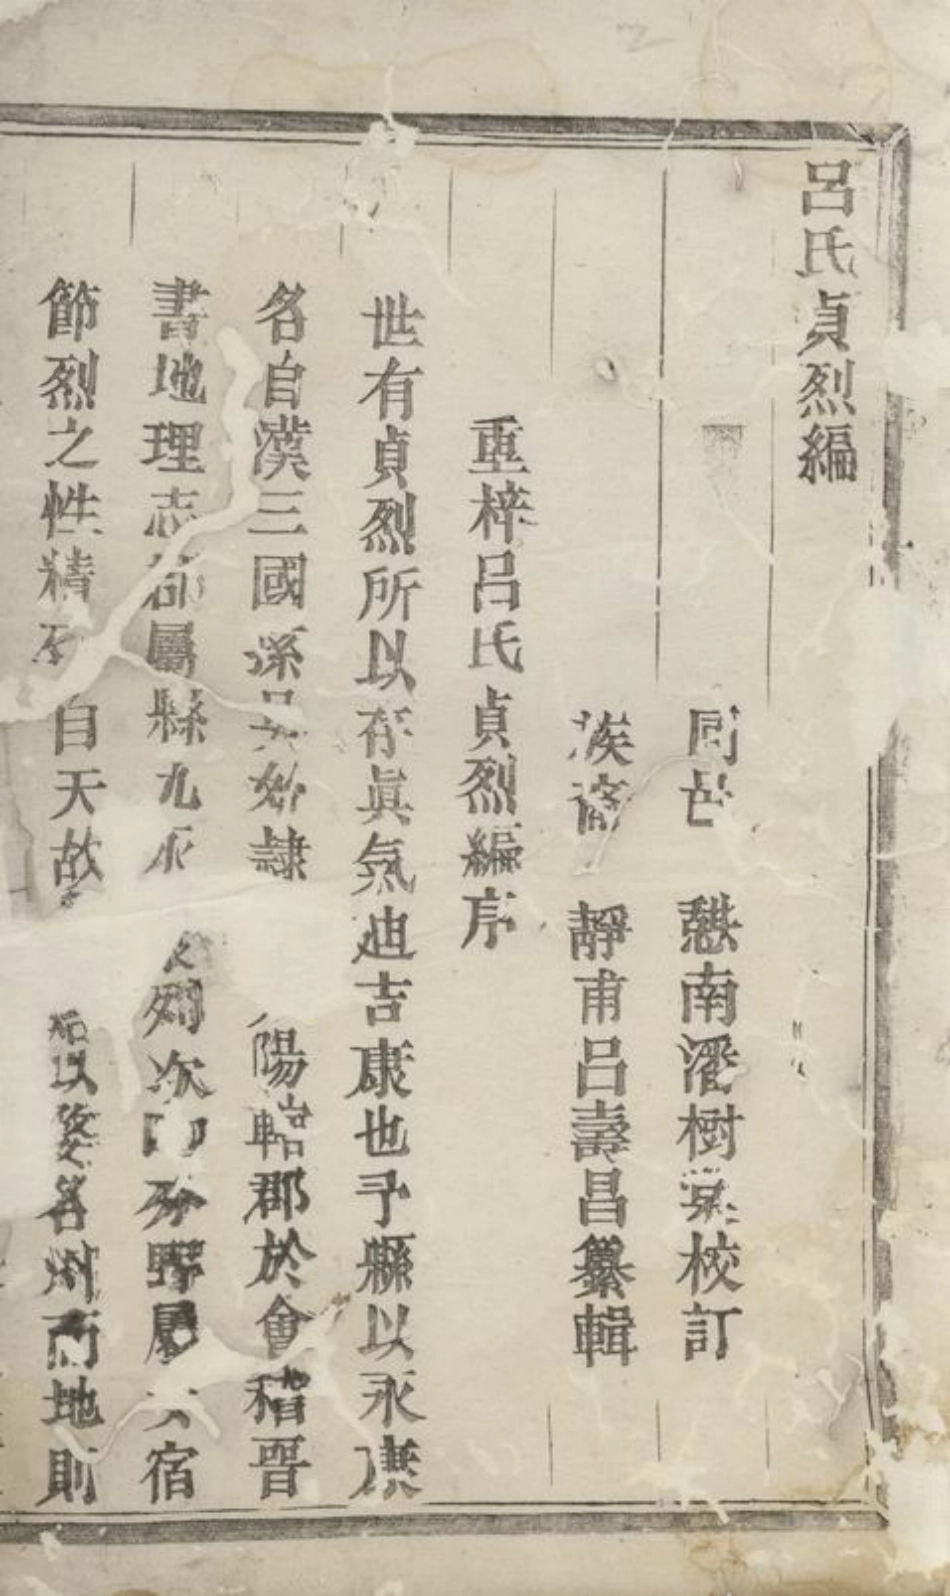 呂氏貞烈編
同邑　南潘樹棠校訂
族裔　靜甫呂壽昌纂輯
重梓呂氏貞烈編序
世有貞烈所以存眞氣迪吉康也予縣以永康
名自漢三國孫吳始隸　陽郡於會稽晉
書地理志郡屬縣九永　列次　分野屬女宿
節烈之性精　自天故　以婺名州而地則